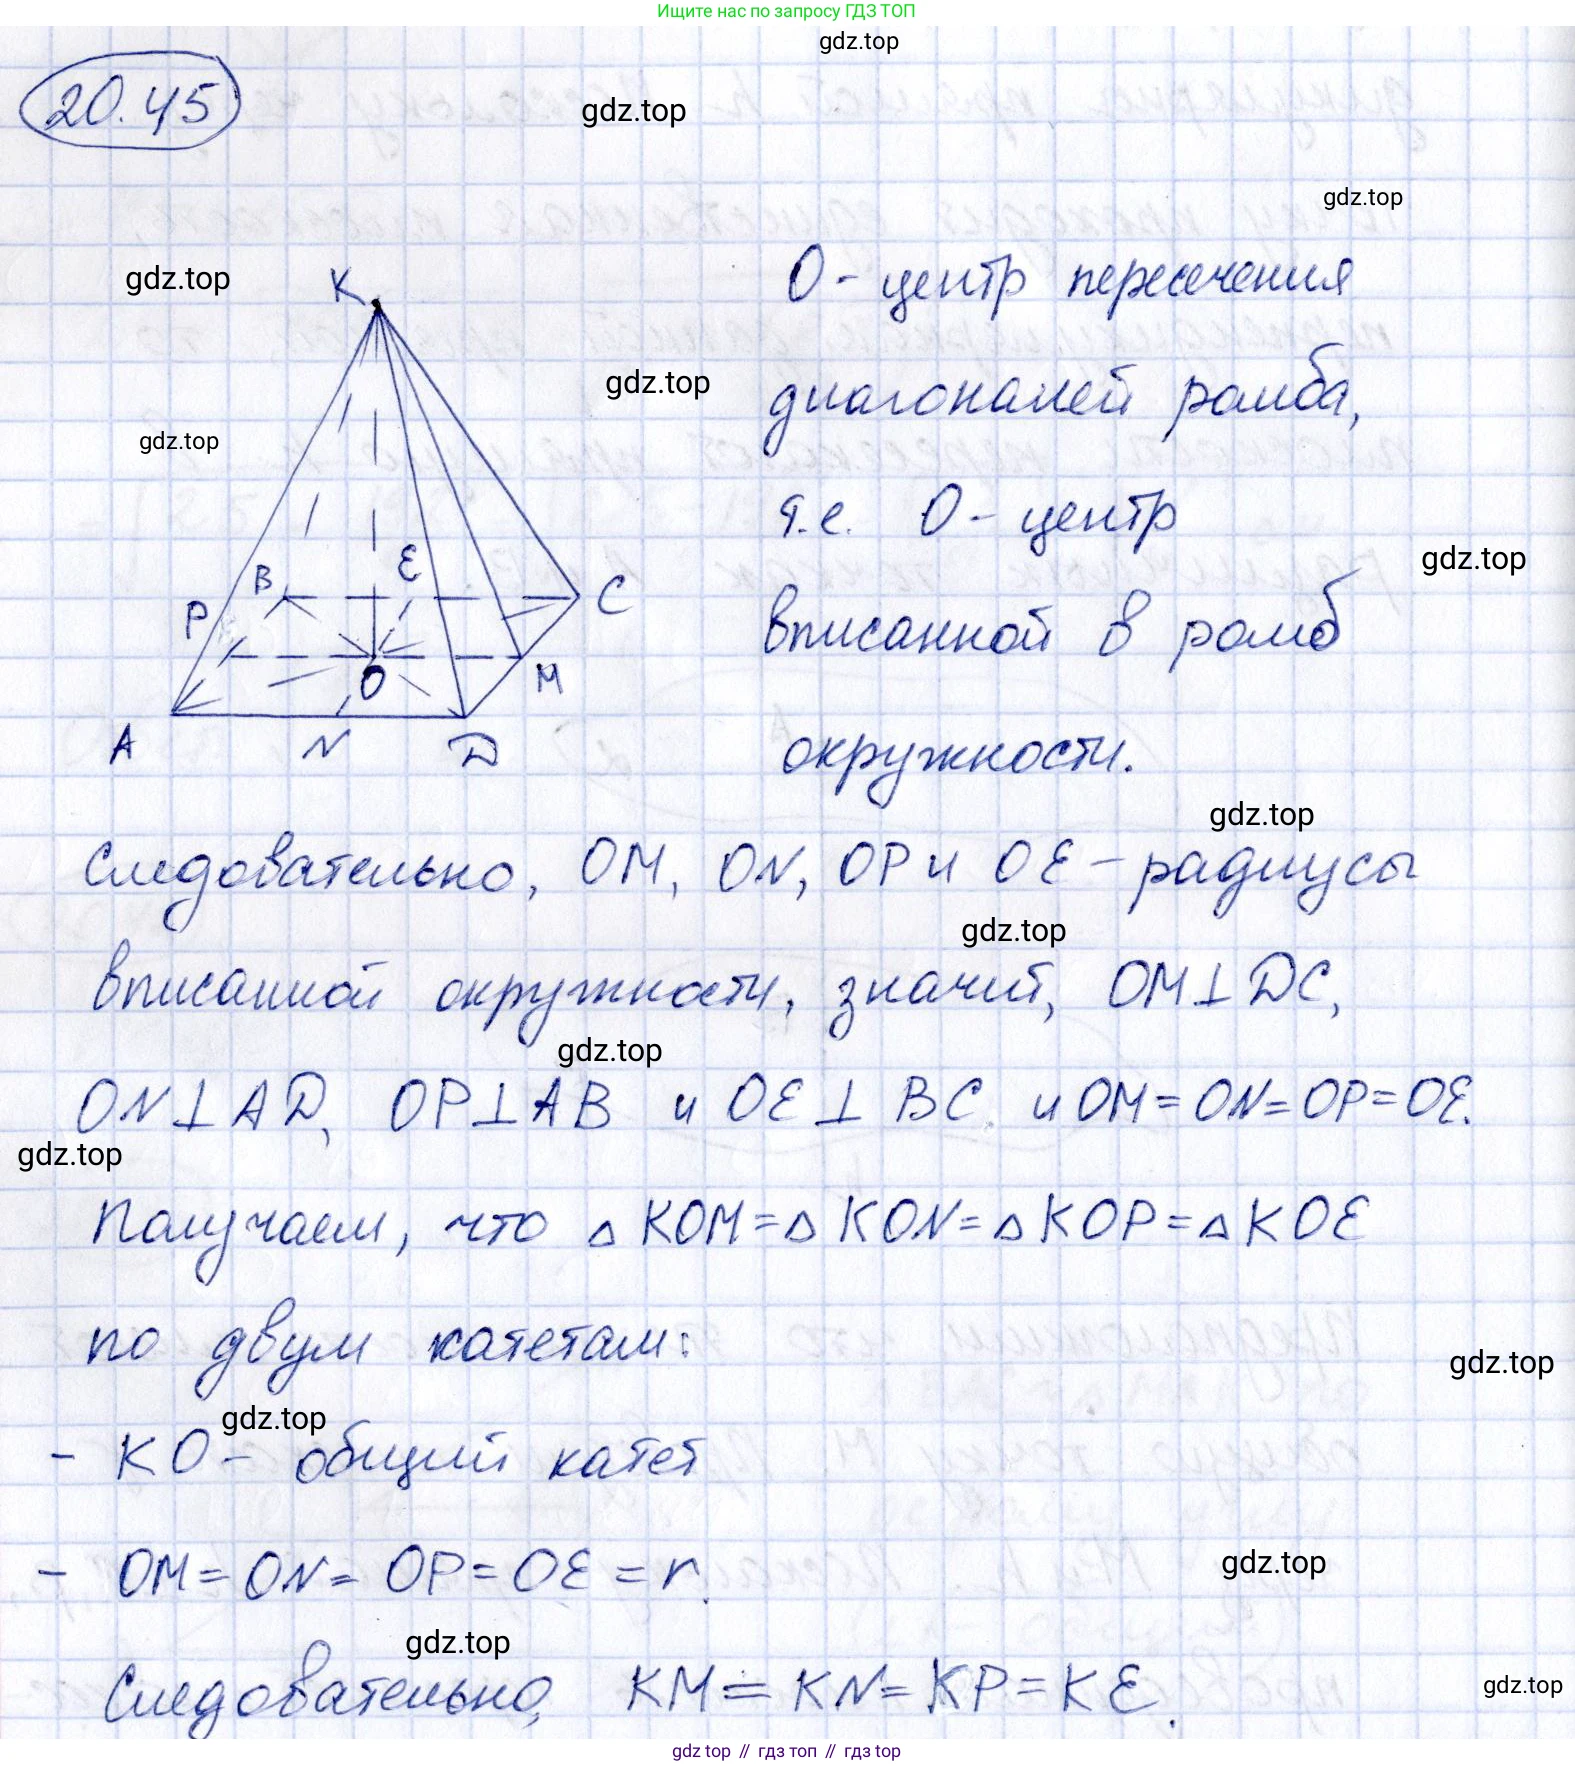 Ищите нас по запросу ГДЗ ТОП
gdz.top
20.45
gdz.top
gdz.top
gdz.top
K
O - центр пересечения
gdz.top
диагоналей ромба,
gdz.top
т.е. O - центр
B
E
C
gdz.top
P
вписанной в ромб
O
M
A
N
D
окружности.
gdz.top
Следовательно, OM, ON, OP и OE - радиусы
gdz.top
вписанной окружности, значит, OM⊥DC,
gdz.top
ON⊥AD, OP⊥AB и OE⊥BC и OM=ON=OP=OE.
gdz.top
Получаем, что △KOM=△KON=△KOP=△KOE
по двум катетам:
gdz.top
gdz.top
- KO - общий катет
- OM=ON=OP=OE=r.
gdz.top
gdz.top
Следовательно, KM=KN=KP=KE.
gdz.top
gdz top // гдз топ // гдз top